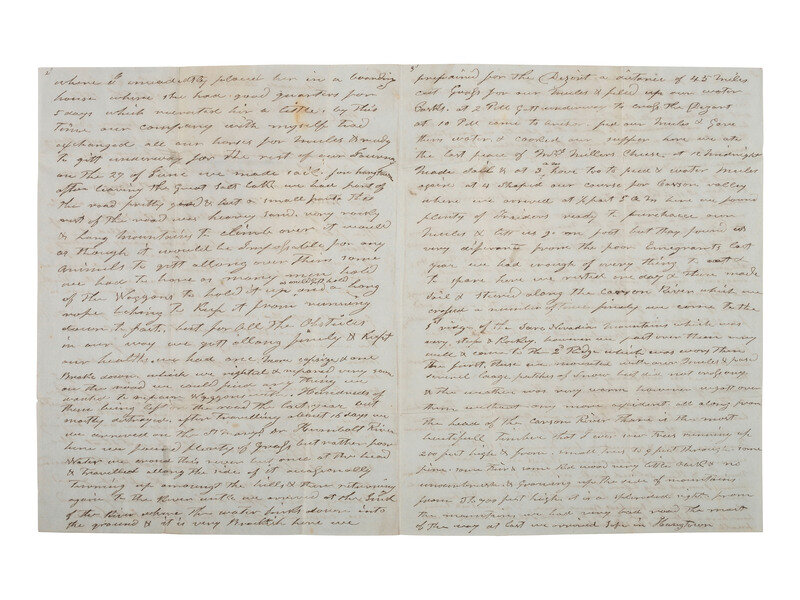 2
where I immeadeatly placed her in a boarding
house where she had good quarters for
5 days which recruited her a little, by this
time our company with myself had
exchanged all our horses for mules & ready
to gitt underway for the rest of our Journy
on the 27 of June we made sail for
after leaving the Great Salt Lake we had part of
the road pretty good & but a small part the
rest of the road was heavy sand, very rocky
& long mountains to climb over it would
as though it would be Impossable for any
animals to gitt allong over them some
we had to have as many men hold
of the Waggons to hold it up as could gitt hold and a long
rope behing to keep it from running
down to fast, but for all the Obsticles
in our way we gott allong finely & Kept
our health, we had one more capsize & one
Brake down, which we righted & repaired very soon
on the road we could find any thing we
wanted to repair Waggons with. Hundreds of
them being left on the road the last year but
mostly destroyed, after travelling about 15 days we
we arrived on the St Marys or Humbolt River
here we found plenty of Grass but rather poor
Water we crossd this river but once at the head
& travelled along the side of it occasionally
turning up amongst the hills & then returning
again to the River untill we arrived at the Sink
of the River where the water sinks down into
the ground & it is very Brackish here we
3
prepaired for the Desert a distance of 45 miles
cut Grass for our mules & filed up our water
Casks. at 2 PM gott underway to cross the Desert
at 10 PM came to anchor fed our Mules & Gave
them water & cooked our supper here we ate
the last peace of Mrs Millers Cheese. at 12 midnight
made sail & at 3 am have too to feed & water Mules
again at 4 Shaped our course for Carson valley
where we arrived at ½ past 5 A M here we found
plenty of Traiders ready to purchace our
Mules & lett us go on foot but they found us
very differant from the poor Emegrants last
year we had enough of every thing to eat &
to spare here we rested one day & then made
sail & steered along the Carson River which we
crossed a number of times finely we came to the
1st ridge of the Sara Nevadia Mountains which was
very steep & Rockey however we past over them very
well & came to the 2d Ridge which was wors than
the first, these we mounted with our mules & passed
several large patches of Snow but did not
& the weather was very warm however we gott over
them without any more accident. all along from
the head of the Carson River thare is the most
beutifull timber that I ever saw trees running up
200 feet high & from small trees to 9 feet through some
pine some & some Red wood very little Oak & no
underbrush & Growing up the side of mountains
from feet high it is a splendid sight from
the mountains we had very bad road the most
of the way at last we arrived safe in Hangtown